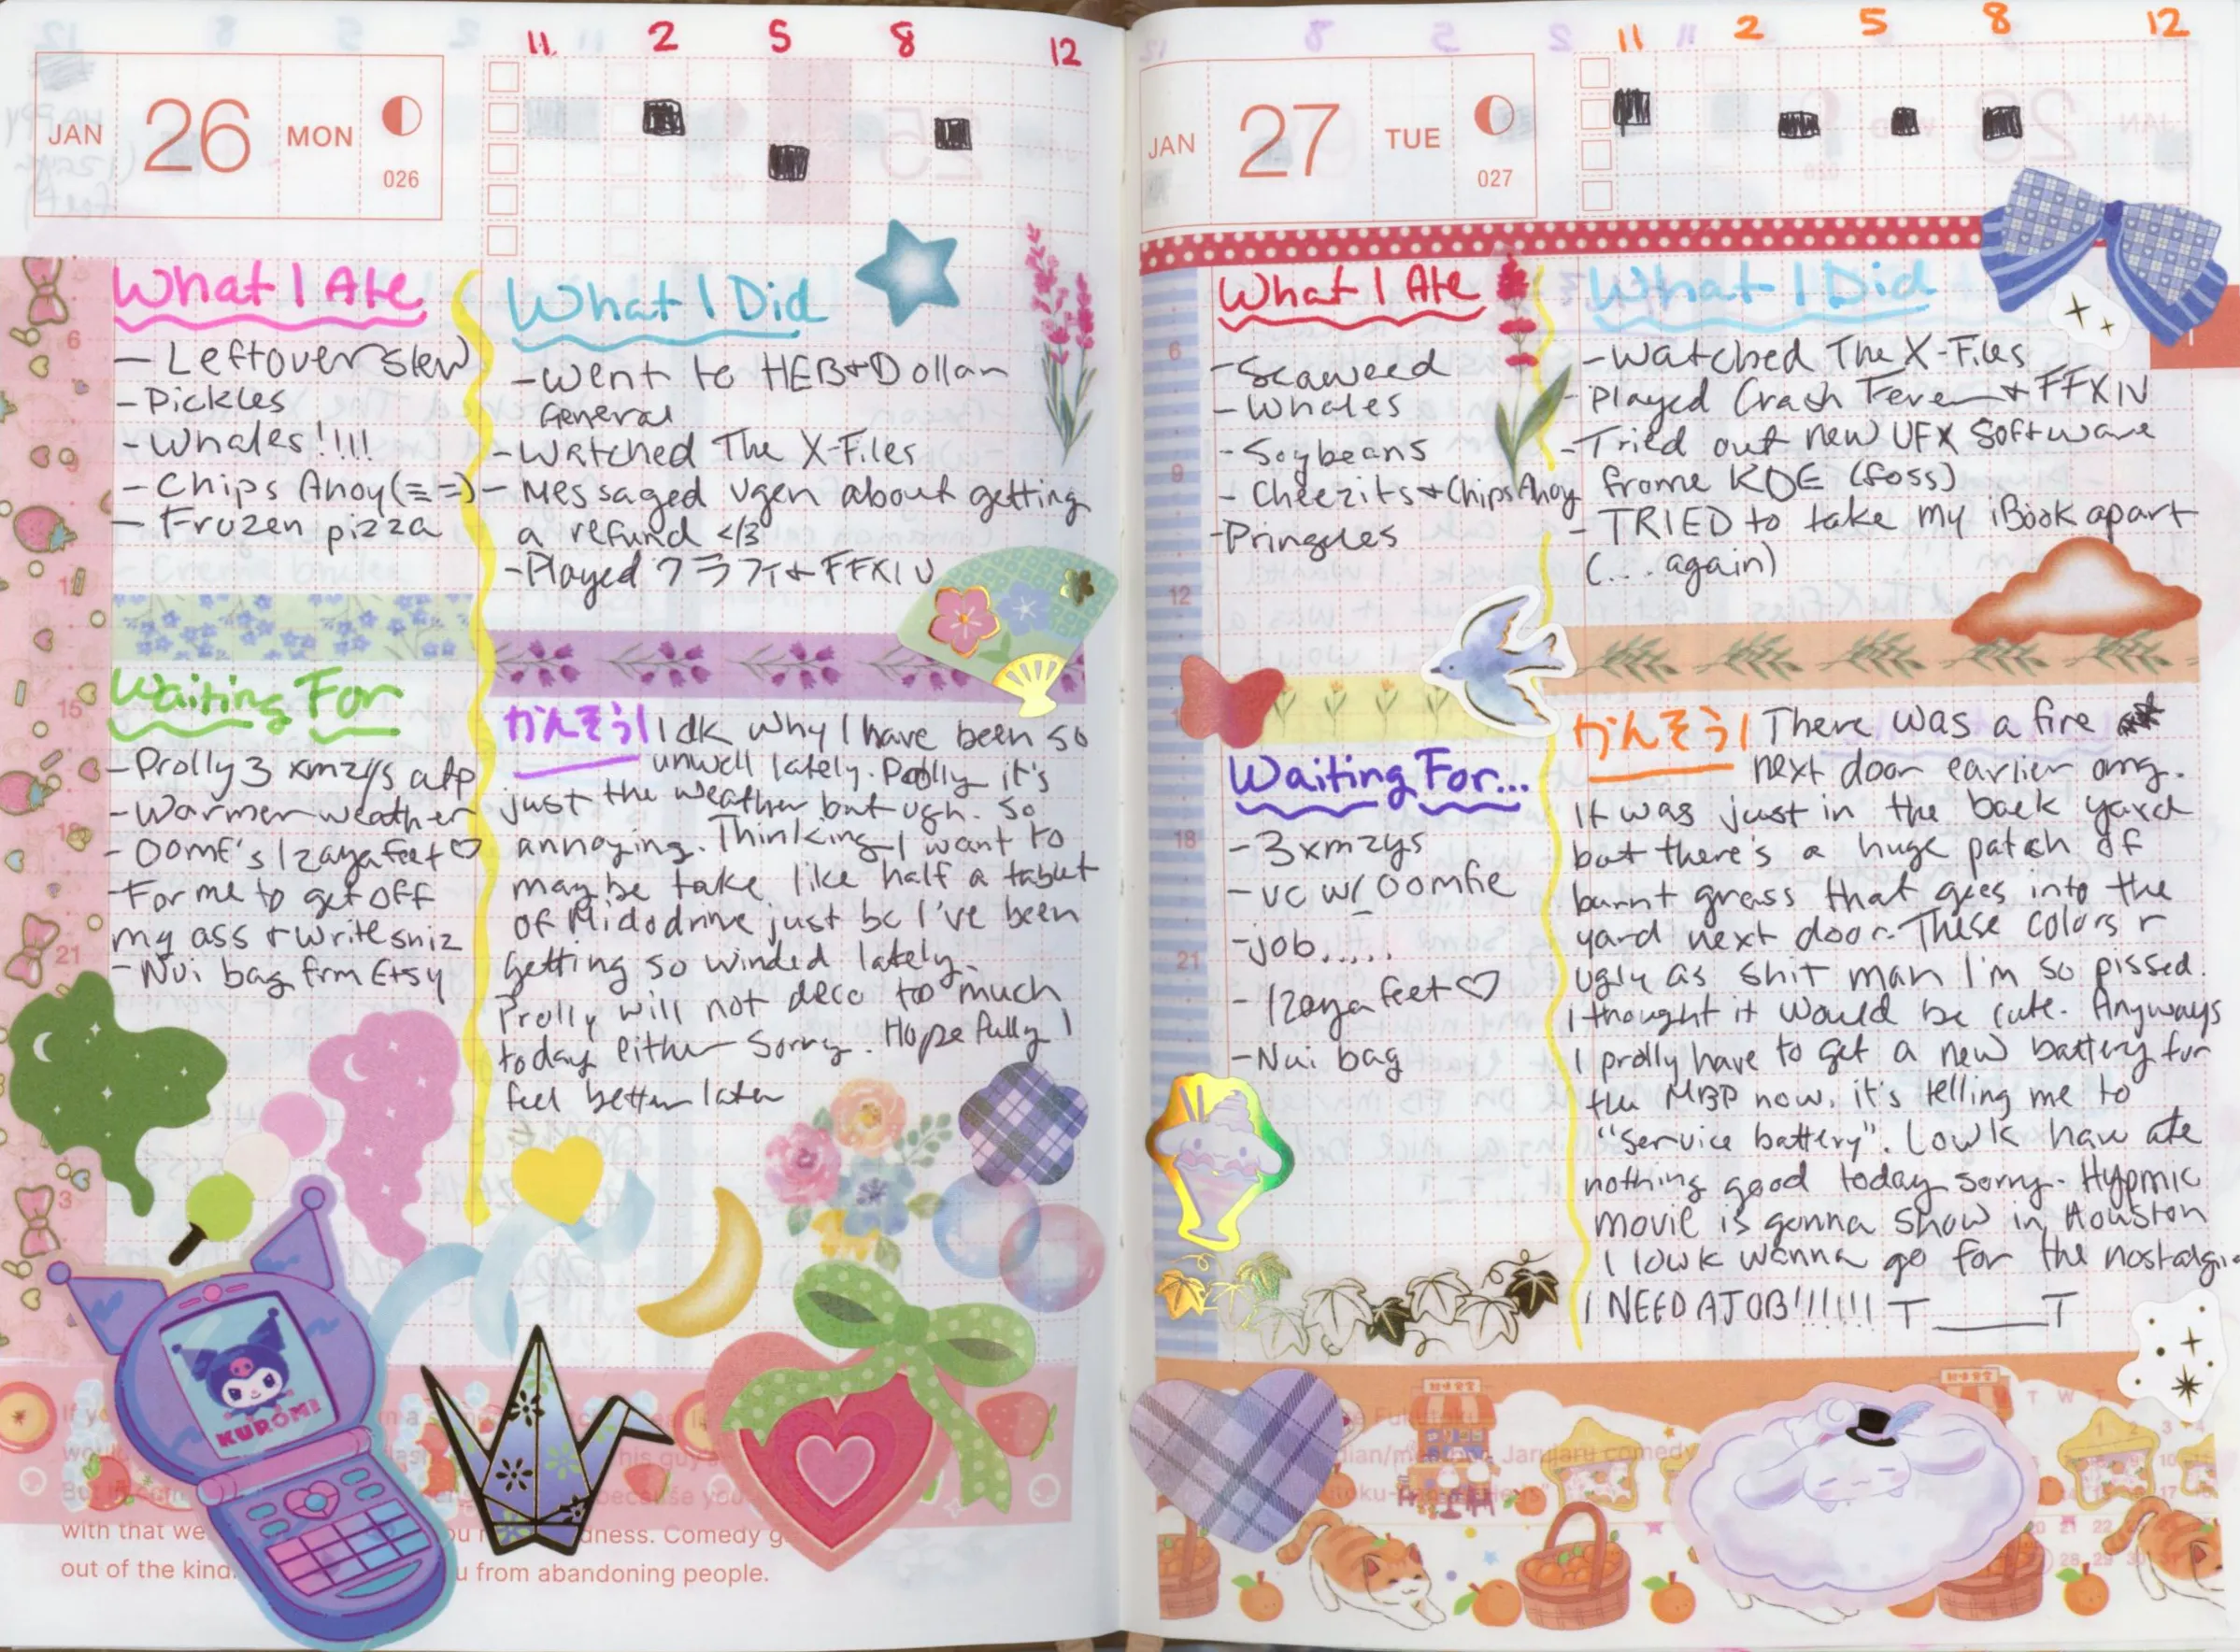 11 2 5 8 12
JAN 26 MON
026
What I Ate
- Leftover stew
- Pickles
- Whales!!!!
- Chips Ahoy (= =)
- Frozen pizza
What I Did
- Went to HEB + Dollar
General
- Watched The X-Files
- Messaged Ugen about getting
a refund </3
- Played クラフィ + FFXIV
Waiting For
- Prolly 3 xmzys atp
- Warmer weather
- Oomf's Izaya feet ♡
- For me to get off
my ass + write shiz
- Nui bag frm Etsy
かんそう! Idk why I have been so
unwell lately. Prolly it's
just the weather but ugh. So
annoying. Thinking I want to
maybe take like half a tablet
of Midodrine just bc I've been
getting so winded lately.
Prolly will not deco too much
today either sorry. Hopefully I
feel better later
KUROMI
with that we
dness. Comedy g
out of the kind.
u from abandoning people.
11 2 5 8 12
JAN 27 TUE
027
1
What I Ate
- Seaweed
- Whales
- Soybeans
- Cheezits + Chips Ahoy
- Pringles
What I Did
- Watched The X-Files
- Played Crash Fever + FFXIV
- Tried out new UFX software
frome KDE (foss)
- TRIED to take my iBook apart
(... again)
Waiting For...
- 3 xmzys
- vc w/ oomfie
- job.....
- Izaya feet ♡
- Nui bag
かんそう! There was a fire
next door earlier omg.
It was just in the back yard
but there's a huge patch of
burnt grass that goes into the
yard next door. These colors r
ugly as shit man I'm so pissed.
I thought it would be cute. Anyways
I prolly have to get a new battery for
the MBP now, it's telling me to
"service battery". Lowk have ate
nothing good today sorry. Hypmic
movie is gonna show in Houston
I lowk wanna go for the nostalgia
I NEED A JOB!!!!!! T____T
6
9
12
15
18
21
3
6
9
12
18
21